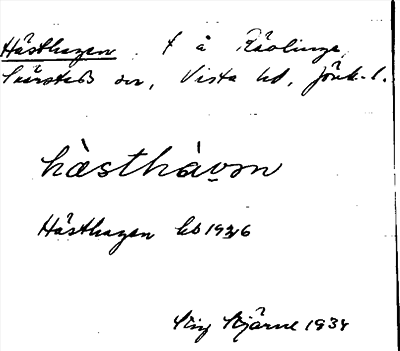 Hästhagen t å Råolinge
Skärstads sn, Vista hd, Jönk. l.
hàsthàvǝn
Hästhagen hd 1926
Stig Bjärne 1934